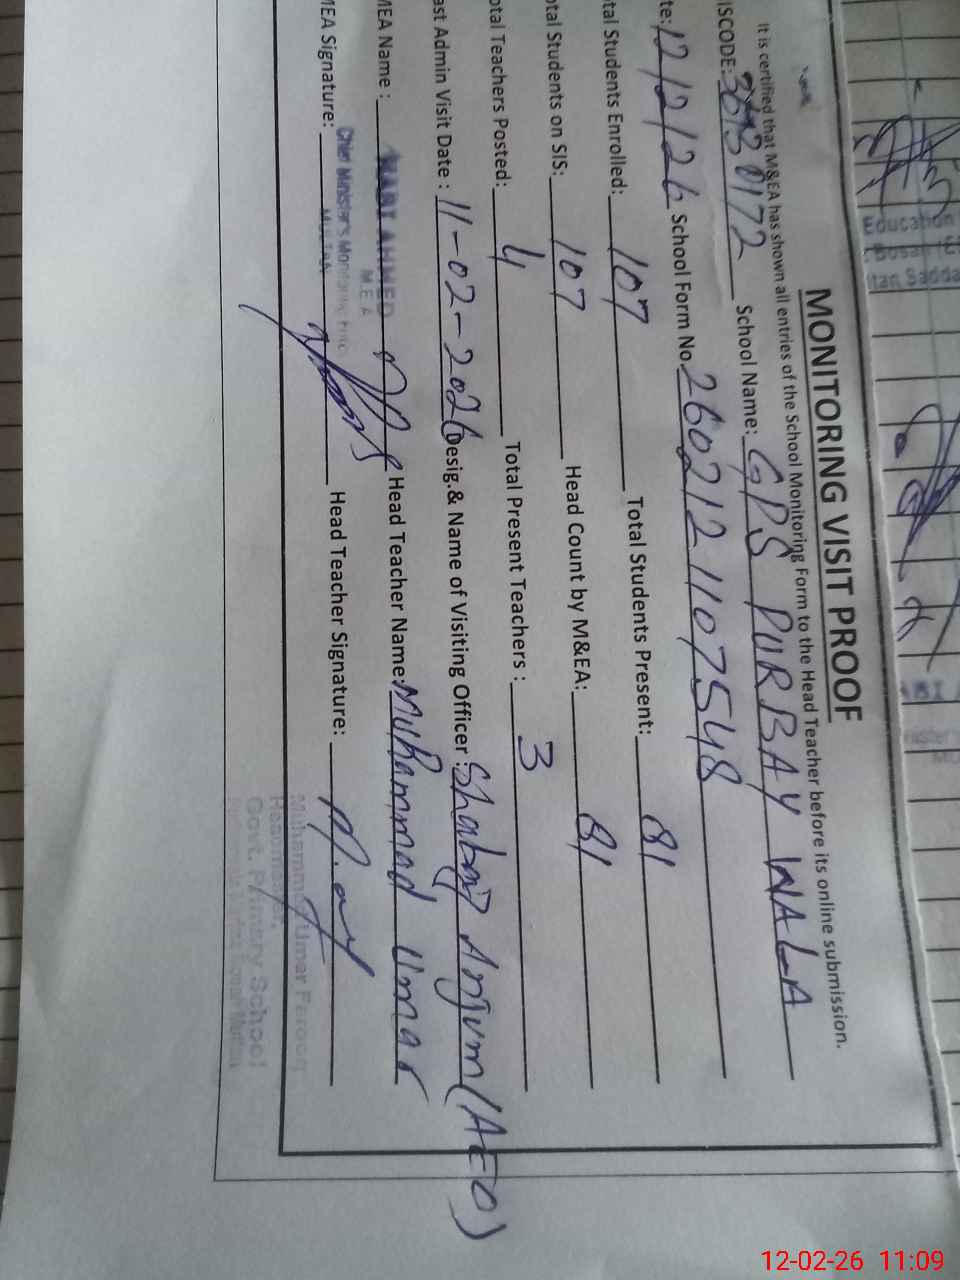 MONITORING VISIT PROOF
It is certified that M&EA has shown all entries of the School Monitoring Form to the Head Teacher before its online submission.
ISCODE: 36130172 School Name: GPS DURBAY WALA
te: 12/2/26 School Form No. 260212110 7548
tal Students Enrolled: 107 Total Students Present: 81
otal Students on SIS: 107 Head Count by M&EA: 81
otal Teachers Posted: 4 Total Present Teachers : 3
ast Admin Visit Date : 11-02-2026 Desig.& Name of Visiting Officer : Anjum (AEO)
MEA Name : AHMED Head Teacher Name: Muhammad Umar
M.E.A
MEA Signature: Head Teacher Signature:
Chief Minister's Monitoring Force
MULTAN
Muhammad Umar Farooq
Headmaster
Govt. Primary School
Education
Bosan
ltan Sadda
12-02-26 11:09